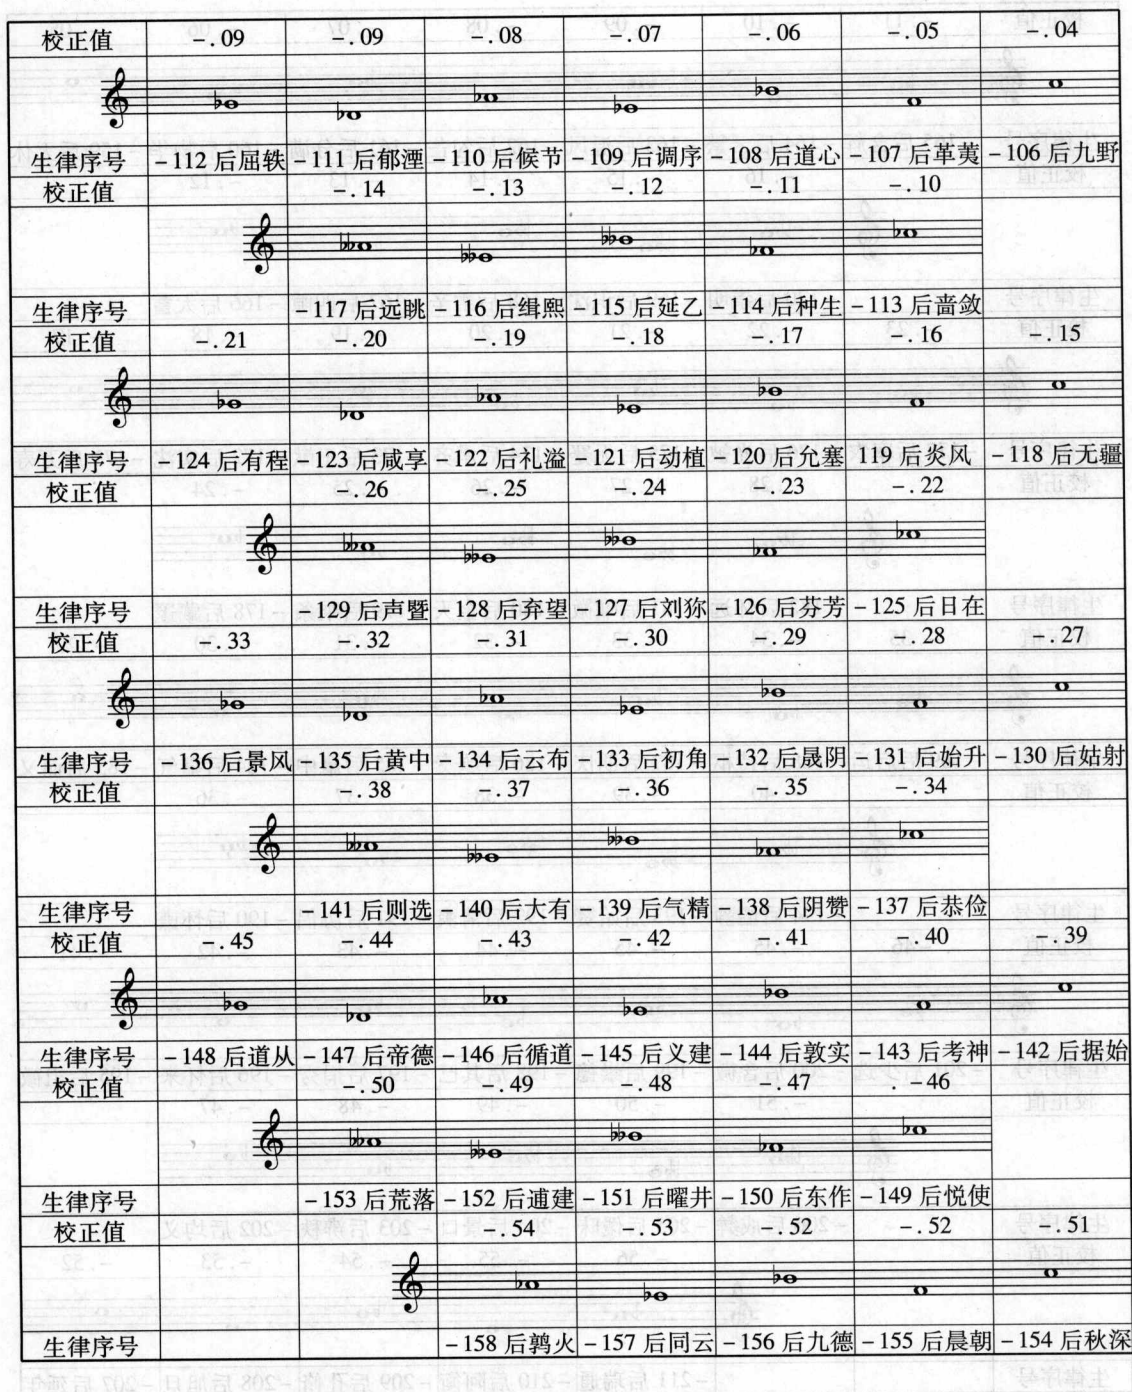 校正值 -.09 -.09 -.08 -.07 -.06 -.05 -.04
生律序号 -112后屈轶 -111后郁湮 -110后候节 -109后调序 -108后道心 -107后革荑 -106后九野
校正值 -.14 -.13 -.12 -.11 -.10
生律序号 -117后远眺 -116后缉熙 -115后延乙 -114后种生 -113后啬敛
校正值 -.21 -.20 -.19 -.18 -.17 -.16 -.15
生律序号 -124后有程 -123后咸享 -122后礼溢 -121后动植 -120后允塞 119后炎风 -118后无疆
校正值 -.26 -.25 -.24 -.23 -.22
生律序号 -129后声暨 -128后弃望 -127后刘狝 -126后芬芳 -125后日在
校正值 -.33 -.32 -.31 -.30 -.29 -.28 -.27
生律序号 -136后景风 -135后黄中 -134后云布 -133后初角 -132后晟阴 -131后始升 -130后姑射
校正值 -.38 -.37 -.36 -.35 -.34
生律序号 -141后则选 -140后大有 -139后气精 -138后阴赞 -137后恭俭
校正值 -.45 -.44 -.43 -.42 -.41 -.40 -.39
生律序号 -148后道从 -147后帝德 -146后循道 -145后义建 -144后敦实 -143后考神 -142后据始
校正值 -.50 -.49 -.48 -.47 .-46
生律序号 -153后荒落 -152后逋建 -151后曜井 -150后东作 -149后悦使
校正值 -.54 -.53 -.52 -.52 -.51
生律序号 -158后鹑火 -157后同云 -156后九德 -155后晨朝 -154后秋深